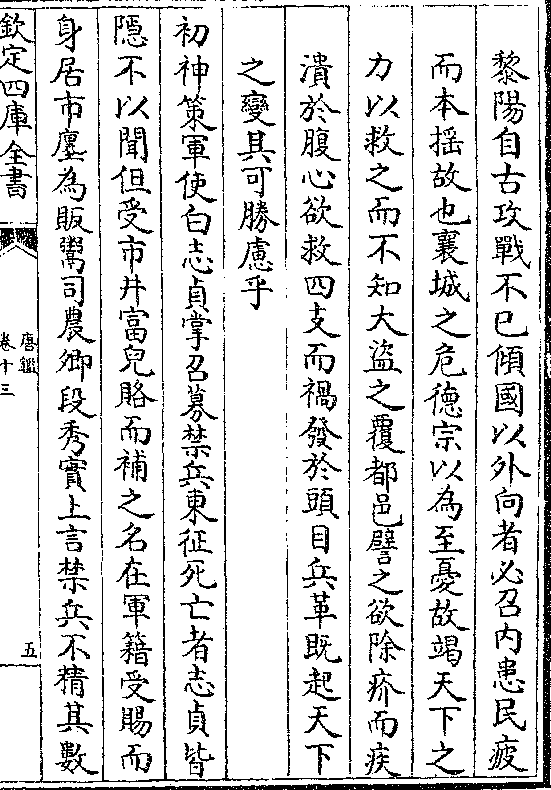 黎陽自古攻戰不已傾國以外向者必召内患民疲
而本揺故也襄城之危德宗以為至憂故竭天下之
力以救之而不知大盜之覆都邑譬之欲除疥而疾
潰於腹心欲救四支而禍發於頭目兵革既起天下
之變其可勝慮乎
初神策軍使白志貞掌召募禁兵東征死亡者志貞皆
隠不以聞但受市井富兒賂而補之名在軍籍受賜而
身居市㕓為販鬻司農卿段秀實上言禁兵不精其數
欽定四庫全書
唐鑑
卷十三
五